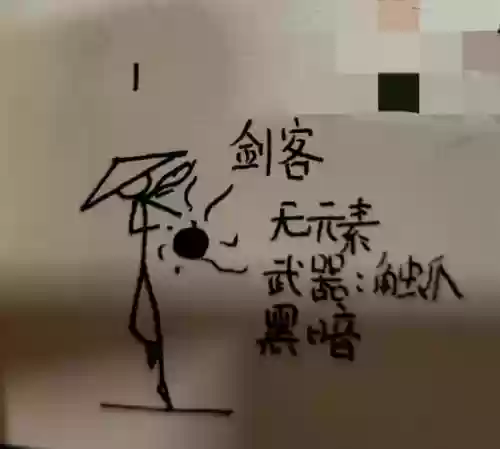 剑客
无元素
武器:触爪
黑暗